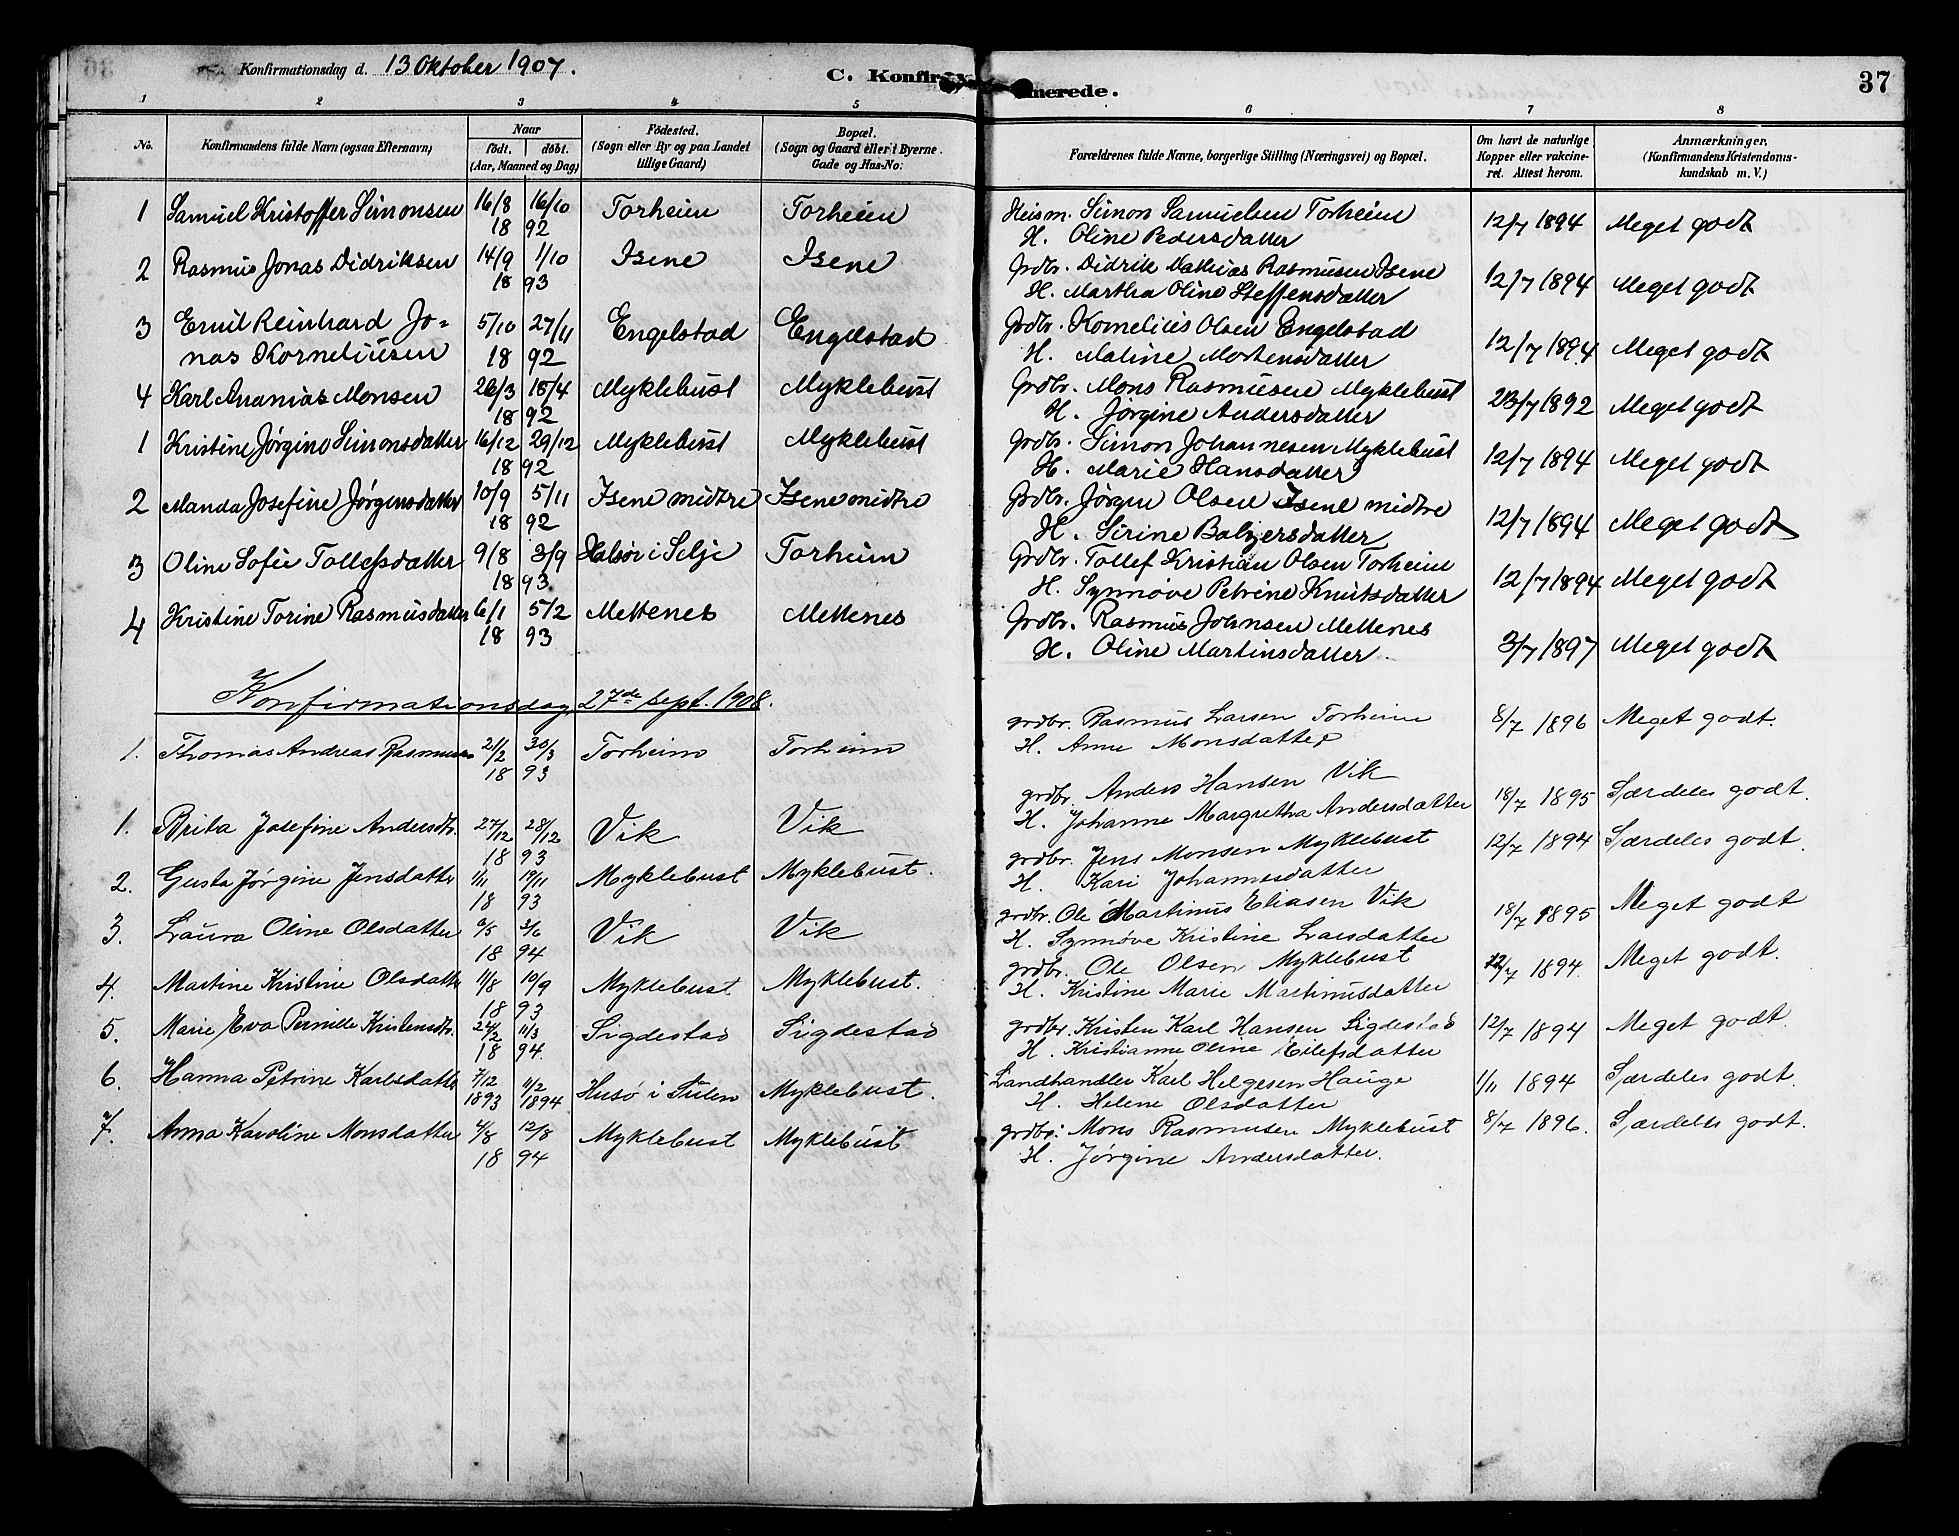 Konfirmationsdag d. 13 Oktober 1907.
C. Konfirmerede.
37
1 2 3 4 5 6 7 8
No. Konfirmandens fulde Navn (ogsaa Efternavn) Naar født. døbt. (Aar, Maaned og Dag) Fødested. (Sogn eller By og paa Landet tillige Gaard) Bopæl. (Sogn og Gaard eller i Byerne Gade og Hus-No. Forældrenes fulde Navne, borgerlige Stilling (Næringsvei) og Bopæl. Om havt de naturlige Kopper eller vakcineret. Attest herom. Anmærkninger. (Konfirmandens Kristendomskundskab m. V.)
1 Samuel Kristoffer Simonsen 16/8 16/10 Torheim Torheim Husm. Simon Samuelsen Torheim 12/7 1894 Meget godt
18 92 H. Oline Pedersdatter
2 Rasmus Jonas Didriksen 14/9 1/10 Isene Isene Grdbr. Didrik Mathias Rasmusen Isene 12/7 1894 Meget godt
18 93 H. Martha Oline Steffensdatter
3 Emil Reinhard Jo= 5/10 27/11 Engelstad Engelstad Grdbr. Kornelius Olsen Engelstad 12/7 1894 Meget godt
nas Korneliusen 18 92 H. Maline Mortensdatter
4 Karl Ananias Monsen 26/3 18/4 Myklebust Myklebust Grdbr. Mons Rasmusen Myklebust 23/7 1892 Meget godt
18 92 H. Jørgine Andersdatter
1 Kristine Jørgine Simonsdatter 16/12 29/12 Myklebust Myklebust Grdbr. Simon Johannesen Myklebust 12/7 1894 Meget godt
18 92 H. Marie Hansdatter
2 Manda Josefine Jørgensdatter 10/9 5/11 Isene midtre Isene midtre Grdbr. Jørgen Olsen Isene midtre 12/7 1894 Meget godt
18 92 H. Sirine Balzersdatter
3 Oline Sofie Tollefsdatter 9/8 3/9 i Selje Torheim Grdbr. Tollef Kristian Olsen Torheim 12/7 1894 Meget godt
18 93 H. Synnøve Petrine Knutsdatter
4 Kristine Torine Rasmusdatter 6/1 5/2 Mettenes Mettenes Grdbr. Rasmus Johnsen Mettenes 3/7 1897 Meget godt
18 93 H. Oline Martinsdatter.
Konfirmationsdag 27de sept. 1908.
1. Thomas Andreas Rasmusen 21/2 30/3 Torheim Torheim grdbr. Rasmus Larsen Torheim 8/7 1896 Meget godt.
18 93 H. Anne Monsdatter
1. Brita Josefine Andersdtr. 27/12 28/12 Vik Vik grdbr. Anders Hansen Vik 18/7 1895 Særdeles godt.
18 93 H. Johanne Margretha Andersdatter
2. Gusta Jørgine Jensdatter 1/11 19/11 Myklebust Myklebust. grdbr. Jens Monsen Myklebust 12/7 1894 Særdeles godt.
18 93 H. Kari Johannesdatter
3. Laura Oline Olsdatter 6/5 3/6 Vik Vik grdbr. Ole Martinus Eliasen Vik 18/7 1895 Meget godt
18 94 H. Synnøve Kristine Larsdatter
4. Martine Kristine Olsdatter 11/8 10/9 Myklebust Myklebust. grdbr. Ole Olsen Myklebust 12/7 1894. Meget godt.
18 93 H. Kristine Marie Martinusdatter
5. Marie Eva Pernille Kristensdtr. 24/2 11/3 Sigdestad Sigdestad grdbr. Kristen Karl Hansen Sigdestad 12/7 1894 Meget godt.
18 94. H. Kristianne Oline Eilefsdatter
6. Hanna Petrine Karlsdatter 7/12 11/2 Husø i Sulen Myklebust. Landhandler Karl Helgesen Hauge 1/11 1894 Særdeles godt.
1893 1894 H. Helene Olsdatter
7. Anna Karoline Monsdatter 4/8 12/8 Myklebust Myklebust grdbr: Mons Rasmusen Myklebust 8/7 1896. Særdeles godt.
18 94 H. Jørgine Andersdatter.